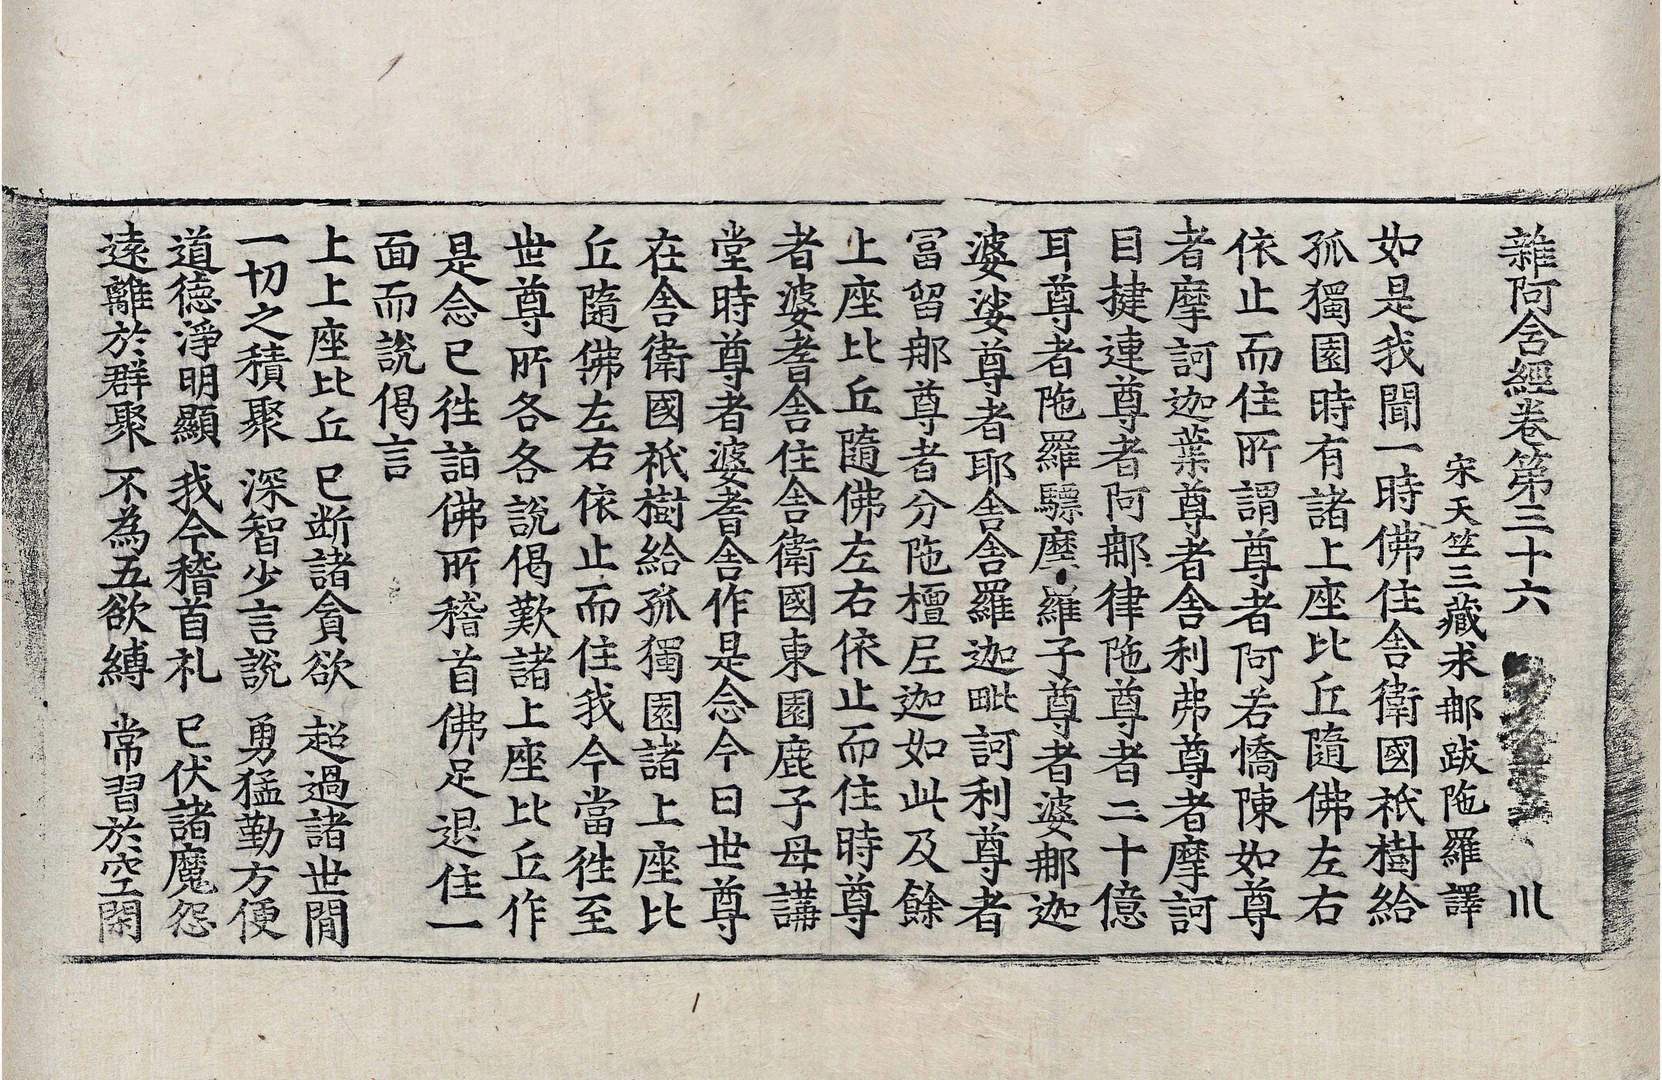 雜阿含經卷第三十六 川
宋天竺三藏求郍跋陁羅譯
如是我聞一時佛住舍衛國祇樹給
孤獨園時有諸上座比丘隨佛左右
依止而住所謂尊者阿若憍陳如尊
者摩訶迦葉尊者舍利弗尊者摩訶
目揵連尊者阿郍律陁尊者二十億
耳尊者陁羅驃摩羅子尊者婆郍迦
婆娑尊者耶舍舍羅迦毗訶利尊者
冨留郍尊者分陁檀尼迦如此及餘
上座比丘隨佛左右依止而住時尊
者婆耆舍住舍衛國東園鹿子母講
堂時尊者婆耆舍作是念今日世尊
在舍衛國祇樹給孤獨園諸上座比
丘隨佛左右依止而住我今當徃至
世尊所各各說偈歎諸上座比丘作
是念已徃詣佛所稽首佛足退住一
面而說偈言
上上座比丘 已断諸貪欲 超過諸世間
一切之積聚 深智少言說 勇猛勤方便
道德淨明顯 我今稽首礼 已伏諸魔怨
逺離於群聚 不為五欲縛 常習於空閑